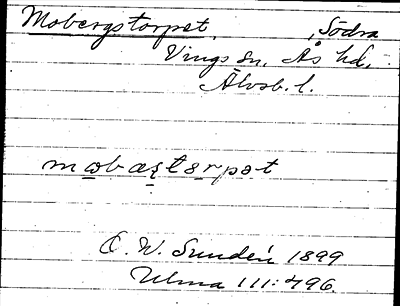 Mobergstorpet, Södra
Vings sn, Ås hd,
Älvsb. l.
mɷbæʂtɛrpət
C. W. Sundén 1899
Ulma 111:496.